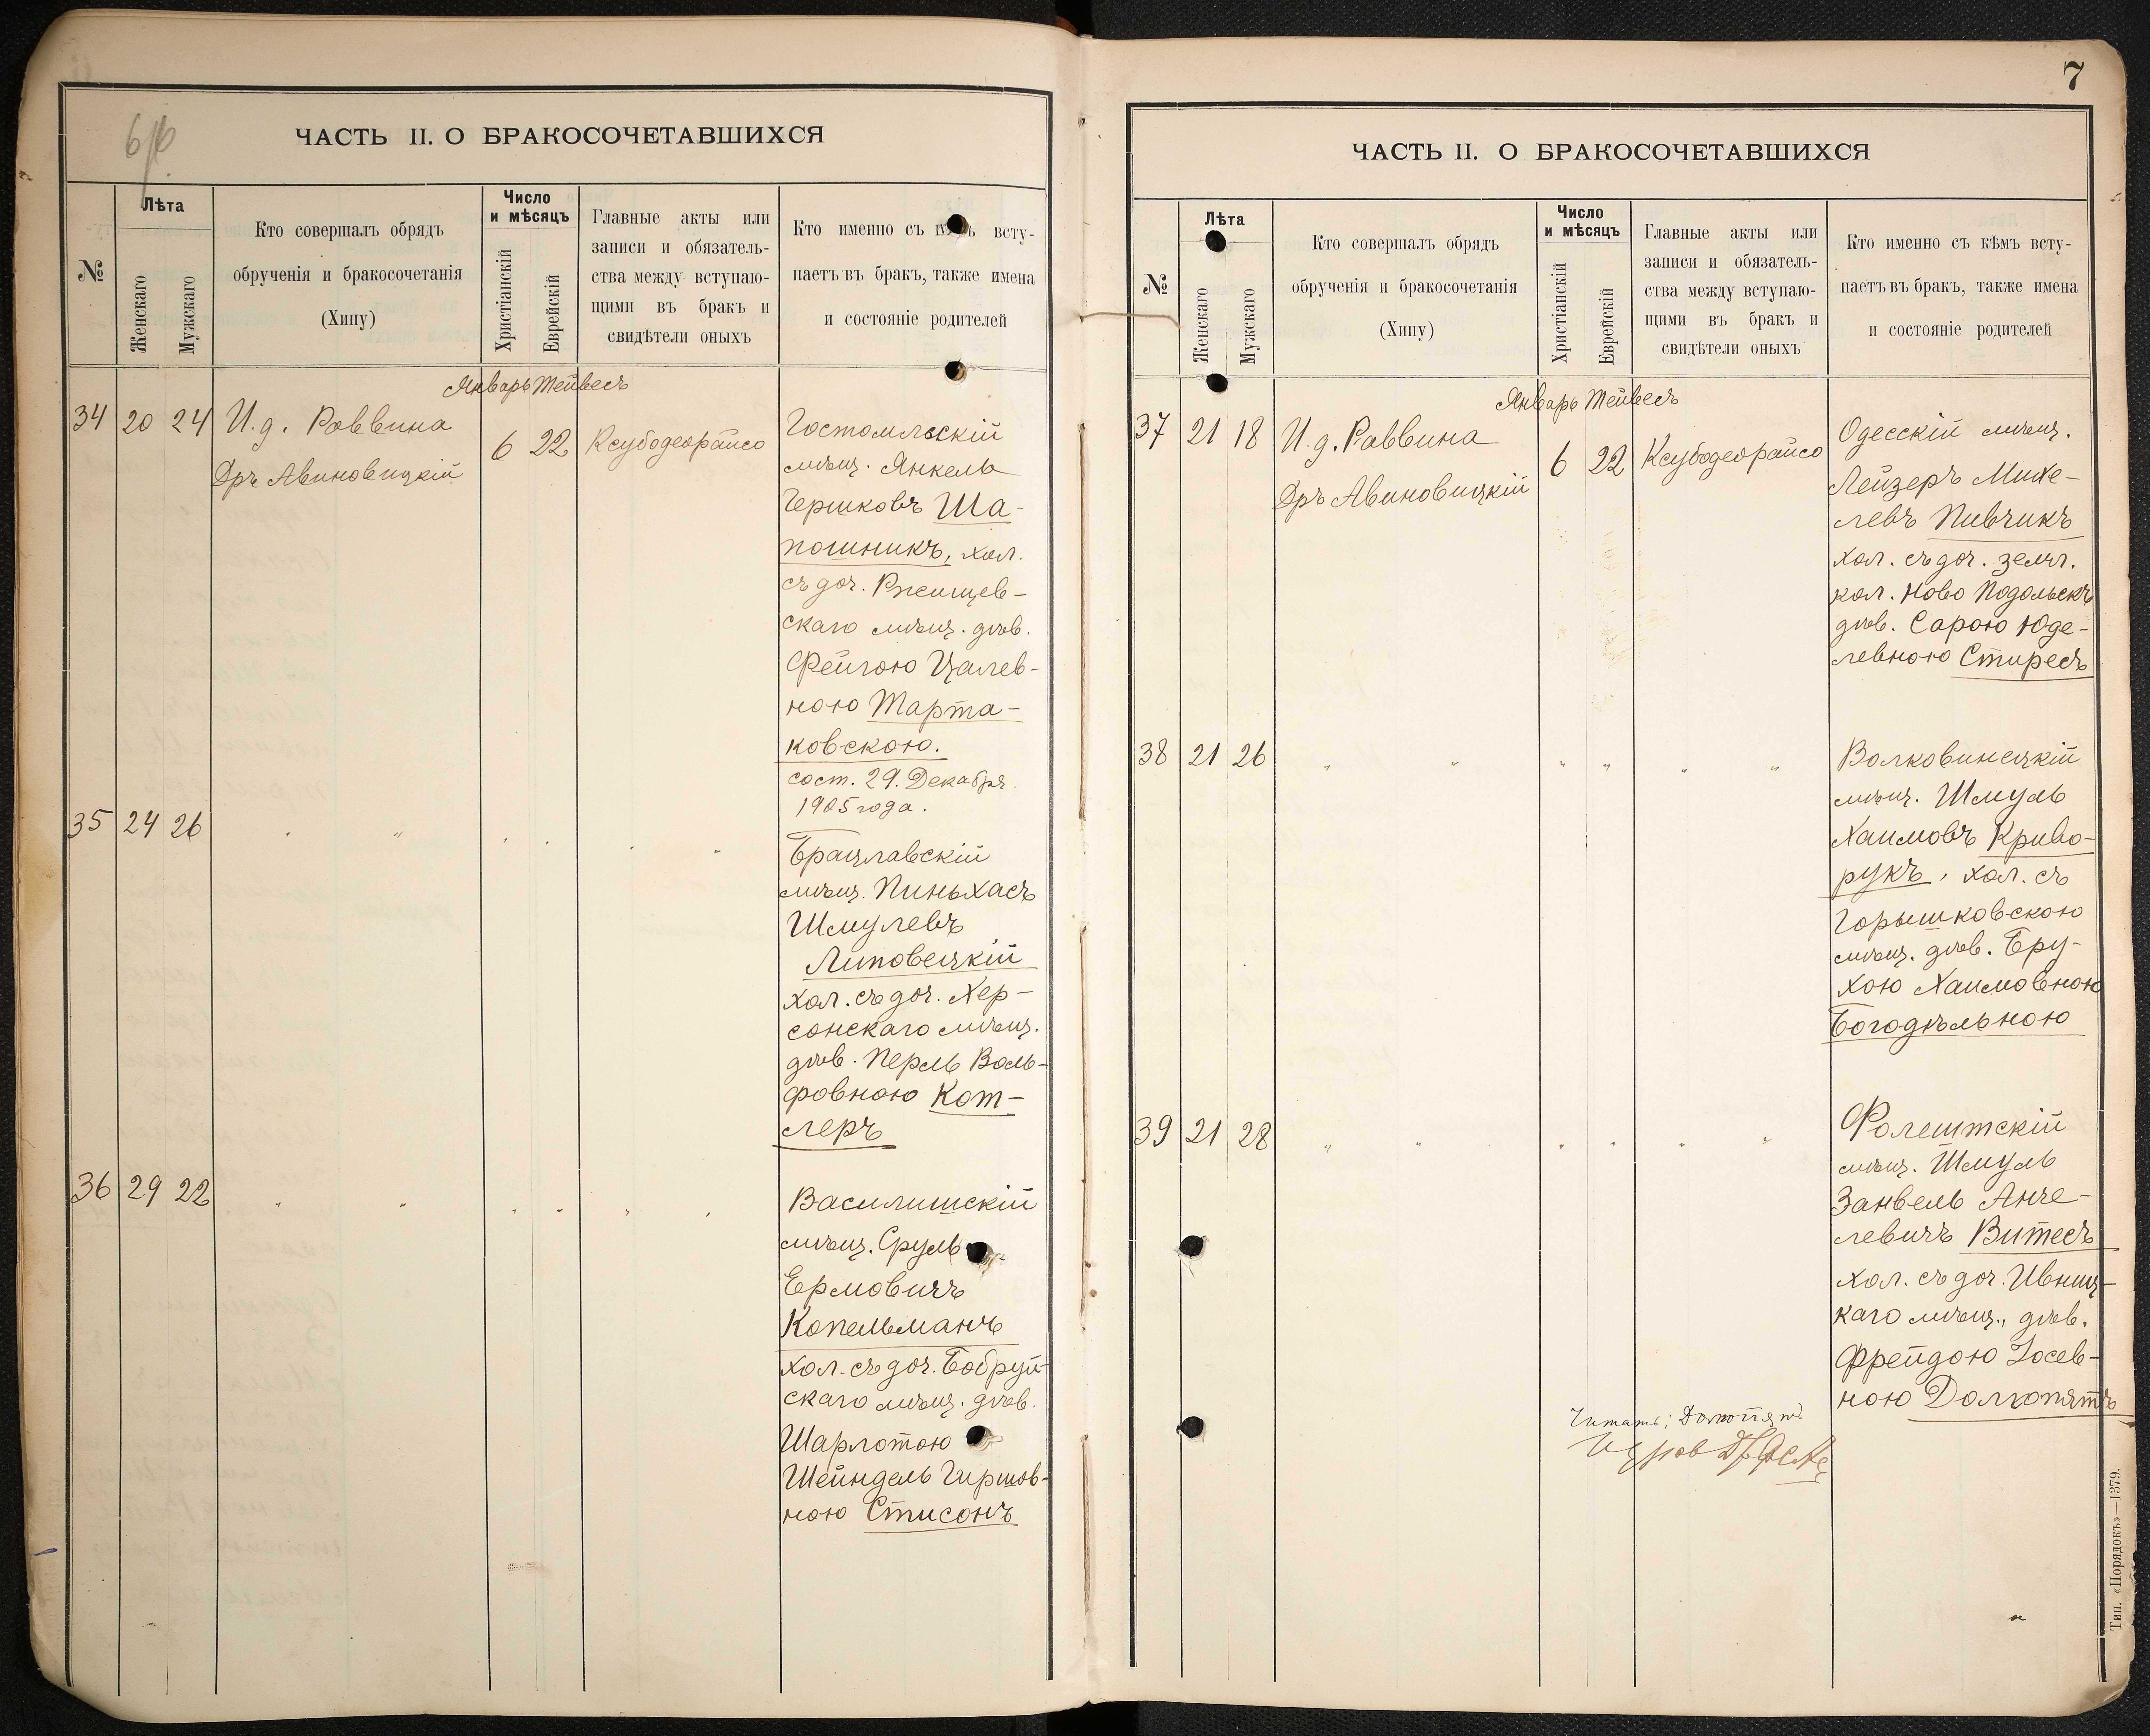 6/6
ЧАСТЬ II. О БРАКОСОЧЕТАВШИХСЯ
№
Лѣта
Женскаго
Мужскаго
Кто совершалъ обрядъ
обрученія и бракосочетанія
(Хипу)
Число
и мѣсяцъ
Христіанскій
Еврейскій
Главные акты или
записи и обязатель-
ства между вступаю-
щими въ бракъ и
свидѣтели оныхъ
Кто именно съ всту-
паетъ въ бракъ, также имена
и состояніе родителей
Январь Тейвесъ
34 20 24 И. д. Раввина
Дръ Авиновицкій
6 22 Ксубодеорайсо
Гостомльскій
мѣщ. Янкель
Гершковъ Ша-
пошникъ, хол.
съ доч. Ржищев-
скаго мѣщ. дѣв.
Фейгою Цалев-
ною Марта-
ковскою.
сост. 29. Декабря
1905 года.
35 24 26 " "
Брацлавскій
мѣщ. Пиньхасъ
Шмулевъ
Липовецкій
хол. съ доч. Хер-
сонскаго мѣщ.
дѣв. Перль Воль-
фовною Кот-
леръ
36 29 22 " "
Василишскій
мѣщ. Сруль
Ермовичъ
Копельманъ
хол. съ доч. Бобруй-
скаго мѣщ. дѣв.
Шарлотою
Шейндель Гиршов-
ною Стисонъ
7
ЧАСТЬ II. О БРАКОСОЧЕТАВШИХСЯ
№
Лѣта
Женскаго
Мужскаго
Кто совершалъ обрядъ
обрученія и бракосочетанія
(Хипу)
Число
и мѣсяцъ
Христіанскій
Еврейскій
Главные акты или
записи и обязатель-
ства между вступаю-
щими въ бракъ и
свидѣтели оныхъ
Кто именно съ кѣмъ всту-
паетъ въ бракъ, также имена
и состояніе родителей
Январь Тейвесъ
37 21 18 И. д. Раввина
Дръ Авиновицкій
6 22 Ксубодеорайсо
Одесскій мѣщ.
Лейзеръ Михе-
левъ Пивчикъ
хол. съ доч. земл.
кол. Ново Подольскъ
дѣв. Сарою Юде-
левною Стиресъ
38 21 26 " " " " " "
Волковинецкій
мѣщ. Шмуль
Хаимовъ Криво-
рукъ, хол. съ
Горышковскою
мѣщ. дѣв. Бру-
хою Хаимовною
Богодѣльною
39 21 28 " " " " " "
Фолештскій
мѣщ. Шмуль
Занвель Анче-
левичъ Витесъ
хол. съ доч. Ивниц-
каго мѣщ., дѣв.
Фрейдою Іосев-
ною Долгопятъ
Читать: Долгопятъ
Тип. «Порядокъ»—1379.